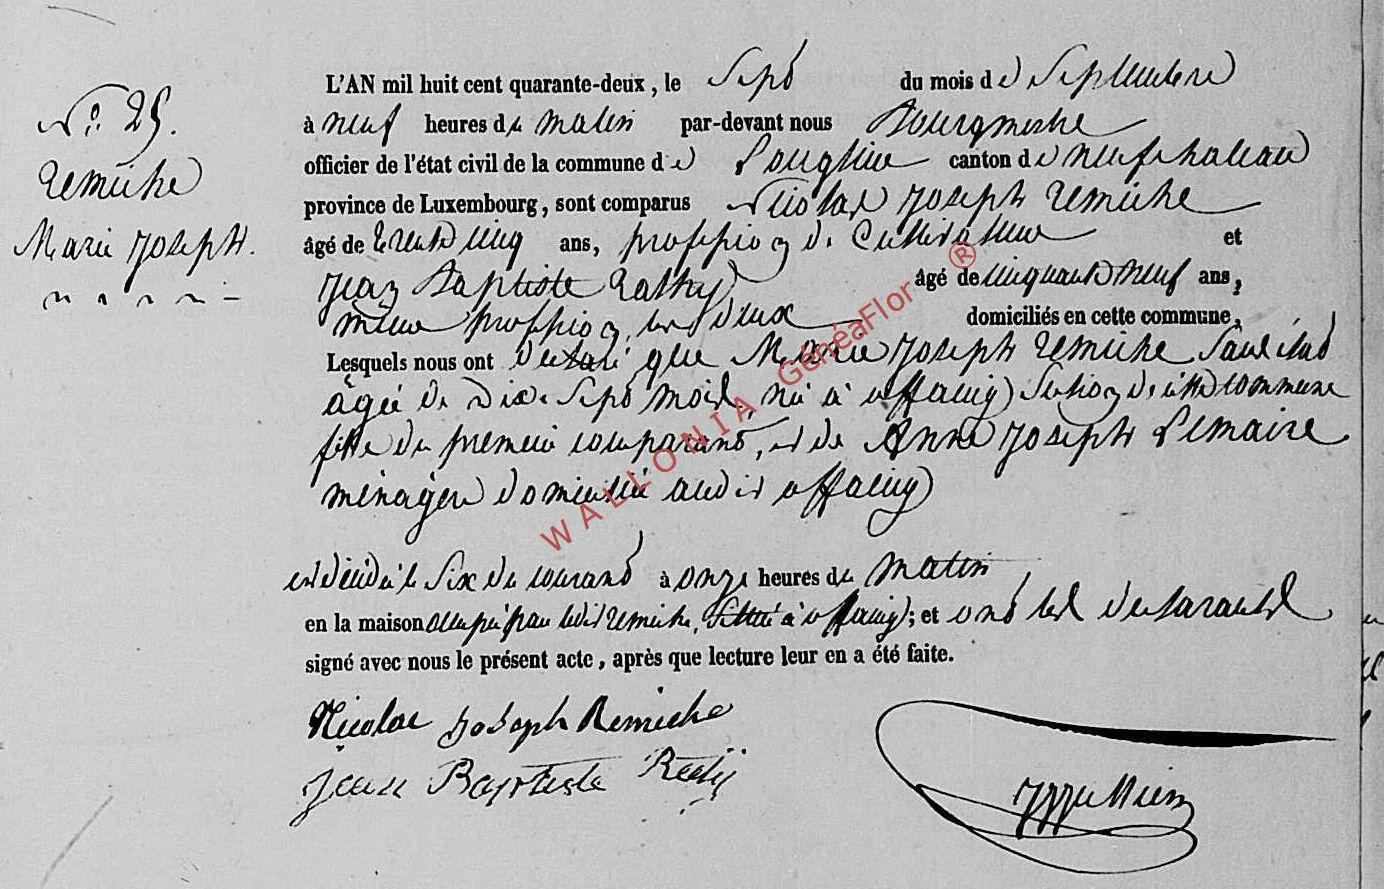 N.° 25.
Remiche
Marie Joseph.
L'AN mil huit cent quarante-deux, le Sept du mois de Septembre
à neuf heures du matin par-devant nous Bourgmestre
officier de l'état civil de la commune de Longlier canton de neufchateau
province de Luxembourg, sont comparus Nicolas Joseph Remiche
âgé de trente cinq ans, profession de Cultivateur et
Jean Baptiste âgé de cinquante neuf ans,
même profession, les deux domiciliés en cette commune,
Lesquels nous ont déclaré que Marie Joseph Remiche
âgée de dix-sept mois, née à offaing section de cette commune
fille du premier comparant, et de Anne Joseph Lemaire
ménagère domiciliée audit offaing
est décédée le Six du courant à onze heures du matin
en la maison occupée par ledit Remiche, située à offaing; et ont les déclarants
signé avec nous le présent acte, après que lecture leur en a été faite.
Nicolas Joseph Remiche
Jean Baptiste
WALLONIA GénéaFlor ®